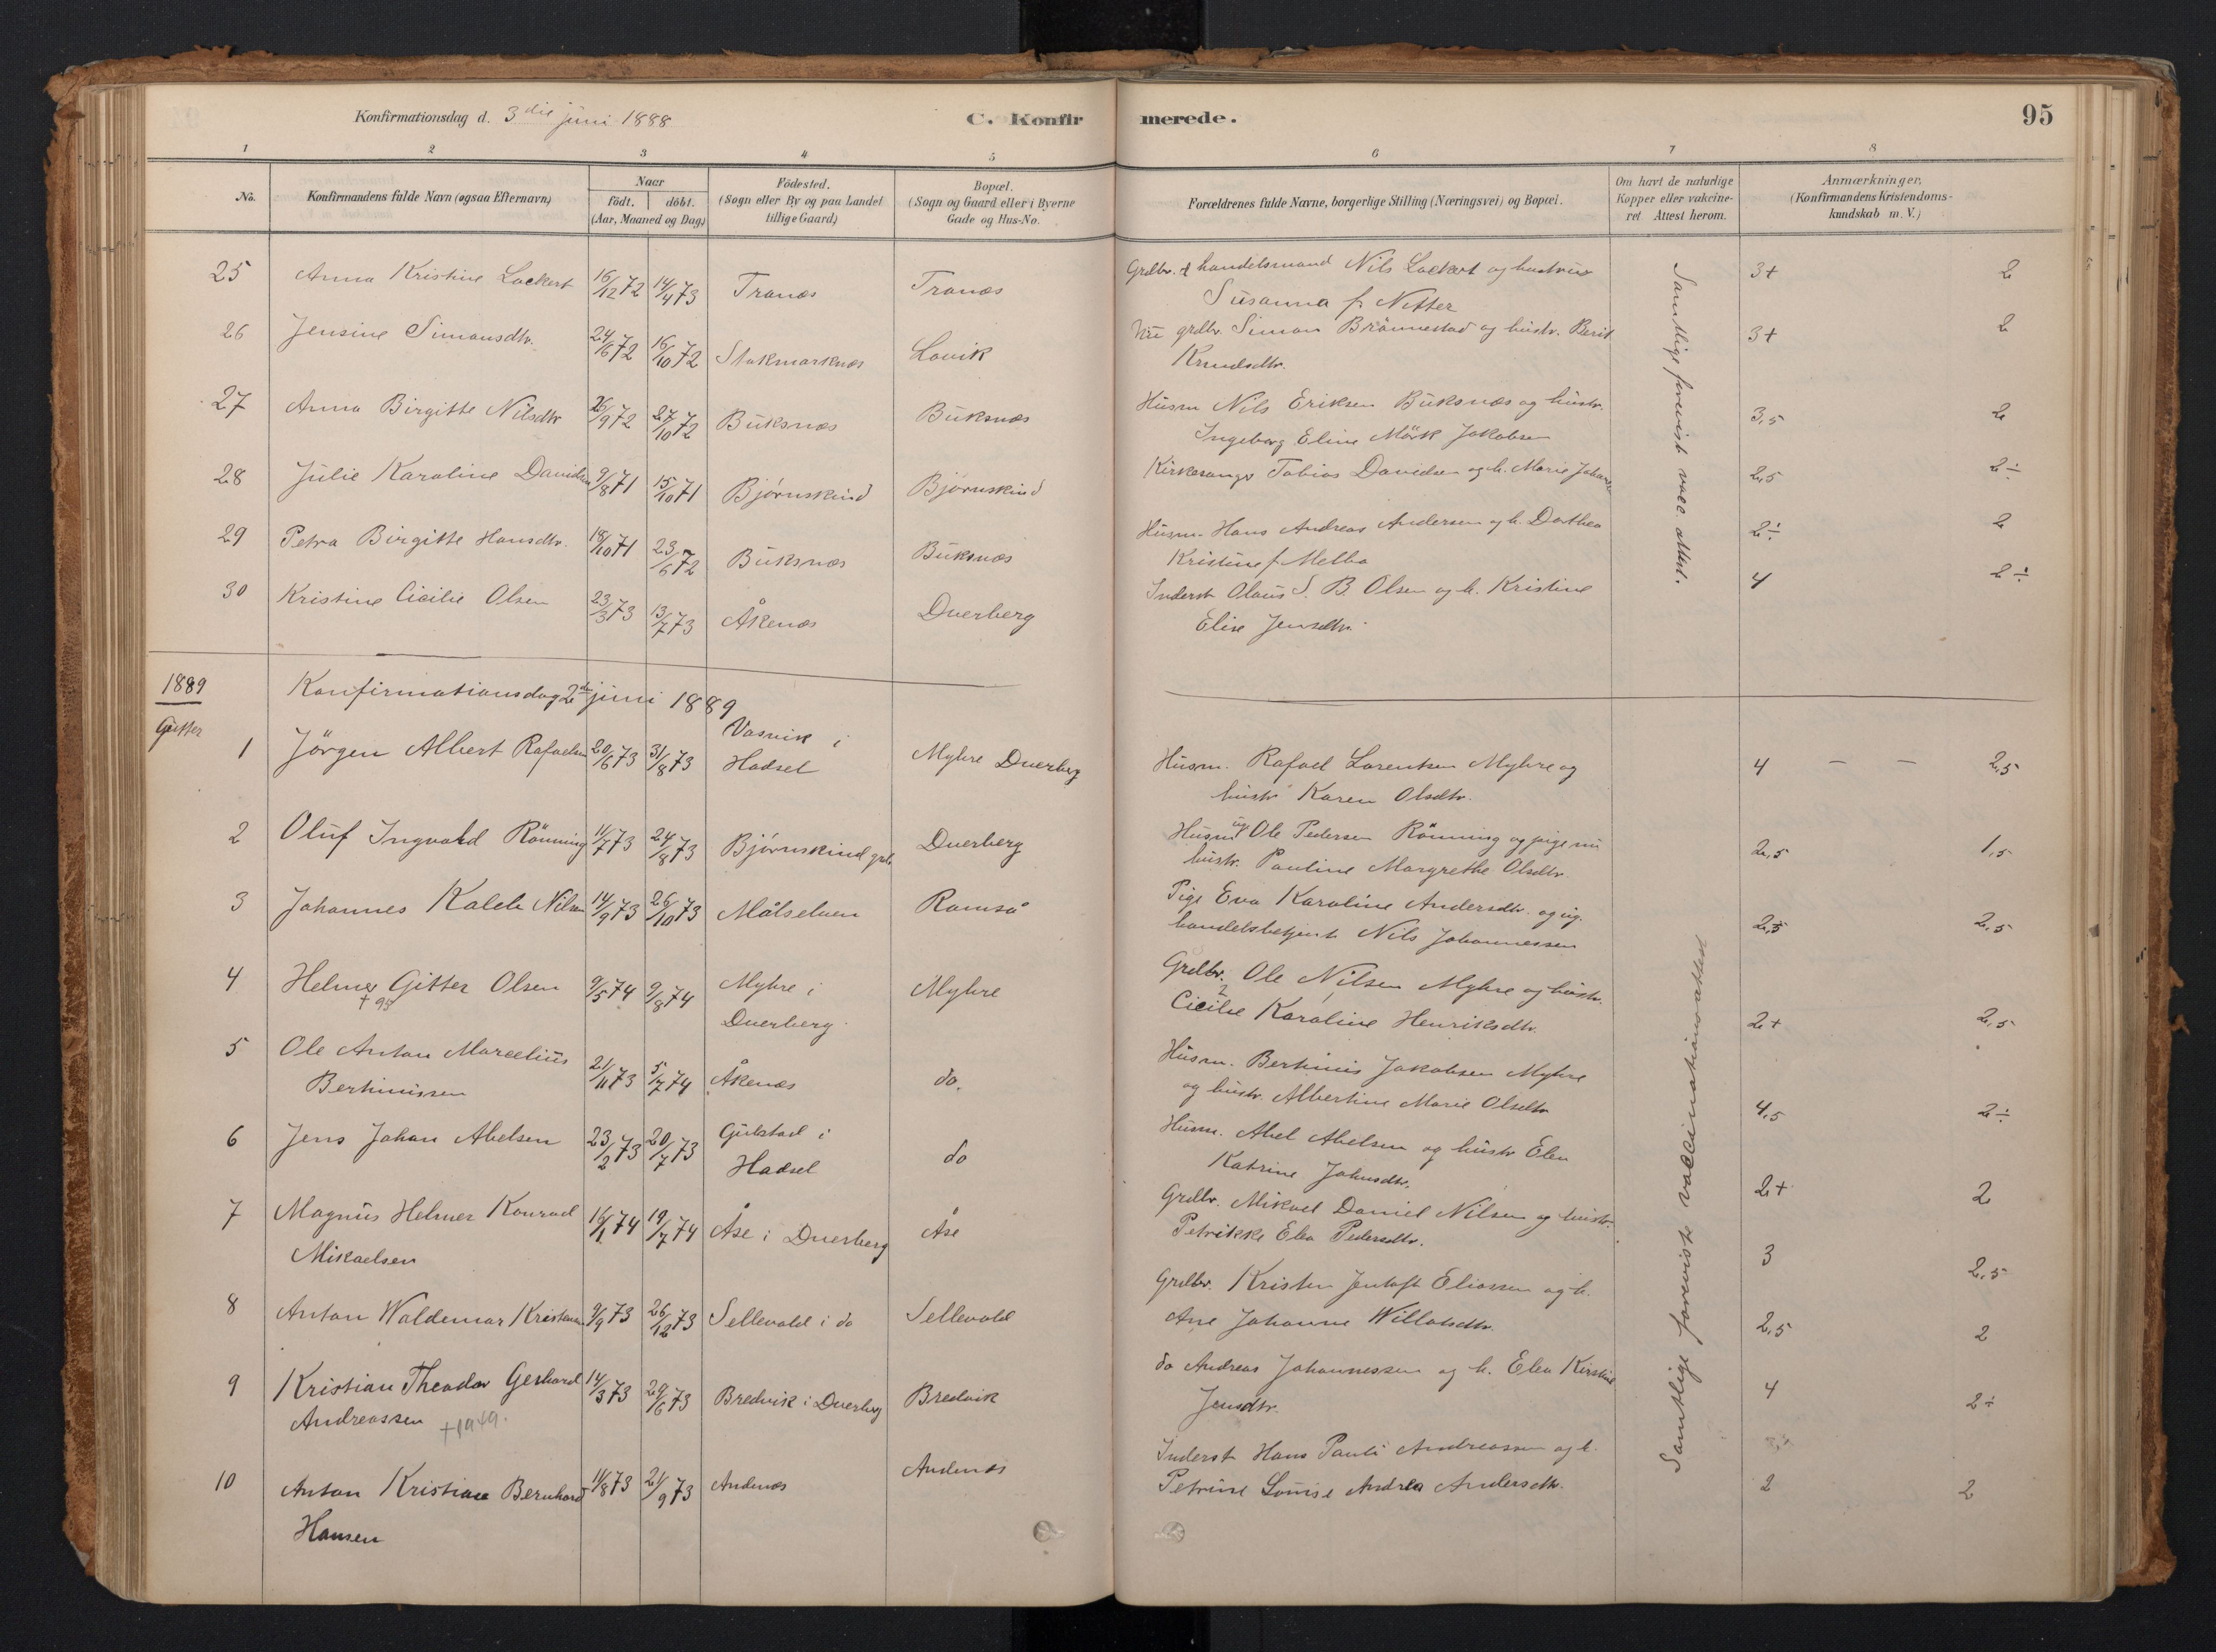 Konfirmationsdag d. 3die juni 1888
C. Konfirmerede.
95
1 2 3 4 5 6 7 8
No.
Konfirmandens fulde Navn (ogsaa Efternavn)
Naar
födt. döbt.
(Aar, Maaned og Dag)
Födested.
(Sogn eller By og paa Landet
tillige Gaard)
Bopæl.
(Sogn og Gaard eller i Byerne
Gade og Hus-No.
Forældrenes fulde Navne, borgerlige Stilling (Næringsvei) og Bopæl.
Om havt de naturlige
Kopper eller vakcine-
ret Attest herom.
Anmærkninger,
(Konfirmandens Kristendoms-
kundskab m. V.)
25 Anna Kristine Lockert 16/12 72 14/4 73 Tranes Tranes Grdbr. & handelsmand Nils Lockert og hustru 3+ 2
Susanna f. Netter
26 Jensine Simonsdtr. 24/6 72 16/10 72 Stokmarknes Lovik grdbr. Simon Brönnestad og hustr. Berit 3+ 2
Knudsdtr.
27 Anna Birgitte Nilsdtr 26/9 72 27/10 72 Buksnes Buksnes Husm Nils Eriksen Buksnes og hustr. 3,5 2
Ingeborg Eline Mörk Jakobsen
28 Julie Karoline Davidsen 9/8 71 15/10 71 Bjørnskind Bjørnskind Kirkesanger Tobias Davidsen og h. Marie 2,5 2÷
29 Petra Birgitte Hansdtr. 18/10 71 23/6 72 Buksnes Buksnes Husm. Hans Andreas Andersen og h. Dorthea 2÷ 2
Kristine f. Melbo
30 Kristine Cicilie Olsen 23/3 73 13/7 73 Åkenes Dverberg Inderst Olaus S. B. Olsen og h. Kristine 4 2÷
Elise Jensdtr.
Samtlige forevist vacc. attest.
1889 Konfirmationsdag 2den juni 1889
Gutter
1 Jörgen Albert Rafaelsen 20/6 73 31/8 73 Vasvik i Hadsel Myhre Dverberg Husm. Rafael Lorentsen Myhre og 4 – – 2,5
hustr Karen Olsdtr.
2 Oluf Ingvald Rönning 11/7 73 24/8 73 Bjørnskind Dverberg Husm ug Ole Pedersen Rönning og pige nu 2,5 1,5
hustr. Pauline Margrethe Olsdtr.
3 Johannes Kaleb Nilsen 14/9 73 26/10 73 Målselven Ramså Pige Eva Karoline Andersdtr. og ug. 2,5 2,5
handelsbetjent Nils Johannessen
4 Helmer Gitter Olsen 9/5 74 9/8 74 Myhre i Dverberg. Myhre Grdbr. Ole Nilsen Myhre og hustr. 2+ 2,5
+ 95
Cicilie Karoline Henriksdtr.
5 Ole Anton Marcelius 21/11 73 5/7 74 Åkenes do. Husm. Bertinius Jakobsen Myhre 4,5 2÷
Bertiniussen
og hustr. Albertine Marie Olsdtr
6 Jens Johan Abelsen 23/2 73 20/7 73 Gulstad i Hadsel do Husm. Abel Abelsen og hustr Elen 2+ 2
Katrine Johnsdtr.
7 Magnus Helmer Konrad 16/1 74 19/7 74 Åse i Dverberg Åse Grdbr. Mikael Daniel Nilsen og hustr. 3 2,5
Mikaelsen
Petrikke Elea Pedersdtr.
8 Anton Waldemar Kristensen 9/9 73 26/12 73 Sellevold i do Sellevold Grdbr. Kristen Jentoft Eliassen og h. 2,5 2
Ane Johanne Willatsdtr.
9 Kristian Theodor Gerhard 14/3 73 29/6 73 Bredvik i Dverberg Bredvik do Andreas Johannessen og h. Elen Kirstine 4 2÷
Andreassen +1949.
Jensdtr.
10 Anton Kristian Bernhard 11/8 73 21/9 73 Andenes Andenes Inderst Hans Pauli Andreassen og h. 2 2
Hansen
Petrine Louise Andrea Andersdtr.
Samtlige foreviste vaccinationsattest